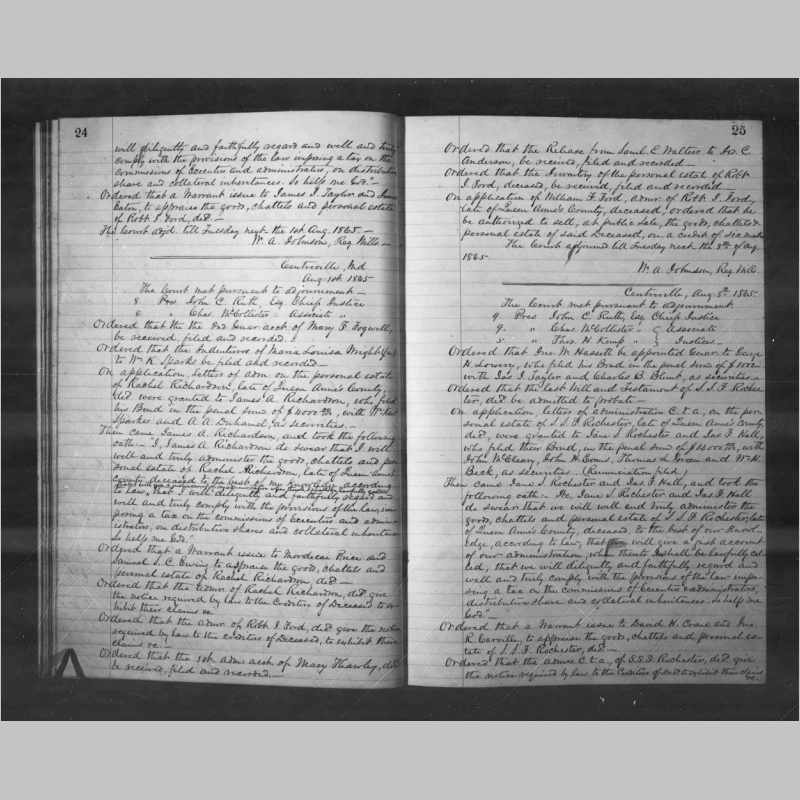 24
will diligently and faithfully regard and well and truly
comply with the provisions of the law imposing a tax on the
commissions of Executors and administrators, on distributive
share and collateral inheritances. So help me God."
Ordered that a Warrant issue to James I. Taylor and
Eaton, to appraise the goods, chattels and personal estate
of Robt I. Ford, dec'd. —
The Court adj'd. till Tuesday next the 1st Aug. 1865 —
W. A. Johnson, Reg Wills —
Centreville, Md
Aug 1st 1865
The Court met pursuant to adjournment —
8 Pres John C. Ruth, Esq Chief Justice
8 " Chas McCollister Associate "
Ordered that the 3rd Guar acct. of Mary F.
be received, filed and recorded. —
Ordered that the Indenture of Maria Louisa Wright
to Wm K. Sparks be filed and recorded —
On application, letters of adm on the personal estate
of Rachel Richardson, late of Queen Anne's County,
dec'd. were granted to James A. Richardson, who filed
his Bond in the penal sum of $ with Wm
Sparks and A. A. Duhamel, as securities. —
Then came James A. Richardson, and took the following
oath — "I, James A. Richardson do swear that I will
well and truly administer the goods, chattels and per
sonal estate of Rachel Richardson, late of Queen Anne's
County deceased to the best of my knowledge, according
to law, that I will diligently and faithfully regard and
well and truly comply with the provisions of the law, im
posing a tax on the commissions of Executors and admin
istrators, on distributive shares and collateral inheritances
So help me God."
Ordered that a Warrant issue to Mordecai Price and
Samuel L. C. Ewing to appraise the goods, chattels and
personal estate of Rachel Richardson, dec'd —
Ordered that the admr. of Rachel Richardson, dec'd give
the notice required by law to the Creditors of Deceased to ex
hibit their claims &c —
Ordered that the admr. of Robt I. Ford, dec'd give the notice
required by law to the creditors of Deceased, to exhibit their
claims &c —
Ordered that the 1st adm. acct. of Mary Thawley, dec'd
be received, filed and recorded. —
25
Ordered that the Release from Saml. C. Walters to Jas C
Anderson, be received, filed and recorded —
Ordered that the Inventory of the personal estate of Robt
I. Ford, deceased, be received, filed and recorded —
On application of William F. Ford, admr. of Robt I. Ford,
late of Queen Anne's County, deceased, ordered that he
be authorized to sell, at public sale, the goods, chattels &
personal estate of said Deceased, on a credit of six months
The Court adjourned till Tuesday next the 8th of Aug
1865.
W. A. Johnson, Reg Wills
Centreville, Aug 8th 1865.
The Court met pursuant to adjournment
9. Pres John C. Ruth, Esq Chief Justice
9. " Chas McCollister " } Associate
5. " Thos H. Kemp " } Justices —
Ordered that Jno. W. Hassett be appointed Guar. to George
H. Lowery, who filed his Bond in the penal sum of $1000.00
with Jas I Taylor and Charles C. as securities —
Ordered that the last Will and Testament of S. S. F. Roches
ter, dec'd be admitted to probate —
On application, letters of administration C. t. a., on the per
sonal estate of S. S. F. Rochester, late of Queen Anne's County,
dec'd, were granted to Jane S Rochester and Jas F. Hall,
who filed their Bond, in the penal sum of with
John McCleary, John H. Evans, Thomas L. Green and Wm H.
Beck, as securities — (Renunciation filed)
Then came Jane S Rochester and Jas F. Hall, and took the
following oath — We Jane S Rochester and Jas F. Hall
do swear that we will well and truly administer the
goods, chattels and personal estate of S. S. F. Rochester, late
of Queen Anne's County, deceased, to the best of our knowl
edge, according to law, that we will give a just account
of our administration, when thereto we shall be lawfully cal
led, that we will diligently and faithfully regard and
well and truly comply with the provisions of the law impo
sing a tax on the commissions of Executors & administrators,
distributive share and collateral inheritances. So help me
God."
Ordered that a Warrant issue to David H. Crane and Jno.
R. Carville, to appraise the goods, chattels and personal es
tate of S. S. F. Rochester, dec'd —
Ordered that the admrs C. t. a., of S. S. F. Rochester, dec'd give
the notice required by law to the Creditors of dec'd to exhibit their claims
&c —